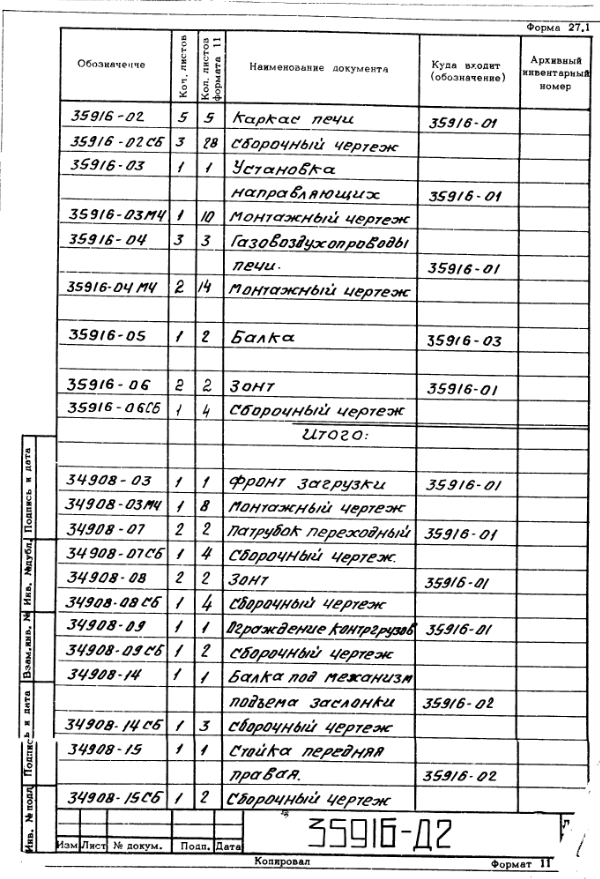 Форма 27.1
Обозначение Кол. листов Кол. листов формата 11 Наименование документа Куда входит (обозначение) Архивный инвентарный номер
35916-02 5 5 Каркас печи 35916-01
35916-02СБ 3 28 Сборочный чертеж
35916-03 1 1 Установка
направляющих 35916-01
35916-03МЧ 1 10 Монтажный чертеж
35916-04 3 3 Газовоздухопроводы
печи. 35916-01
35916-04МЧ 2 14 Монтажный чертеж
35916-05 1 2 Балка 35916-03
35916-06 2 2 Зонт 35916-01
35916-06СБ 1 4 Сборочный чертеж
Итого:
34908-03 1 1 Фронт загрузки 35916-01
34908-03МЧ 1 8 Монтажный чертеж
34908-07 2 2 Патрубок переходный 35916-01
34908-07СБ 1 4 Сборочный чертеж.
34908-08 2 2 Зонт 35916-01
34908-08СБ 1 4 Сборочный чертеж
34908-09 1 1 Ограждение контргрузов 35916-01
34908-09СБ 1 2 Сборочный чертеж
34908-14 1 1 Балка под механизм
подъема заслонки 35916-02
34908-14СБ 1 3 Сборочный чертеж
34908-15 1 1 Стойка передняя
правая. 35916-02
34908-15СБ 1 2 Сборочный чертеж
Подпись и дата
Инв. №дубл.
Взам.инв. №
Подпись и дата
Инв. №подл
Изм Лист № докум. Подп. Дата
35916-Д2
Копировал Формат 11